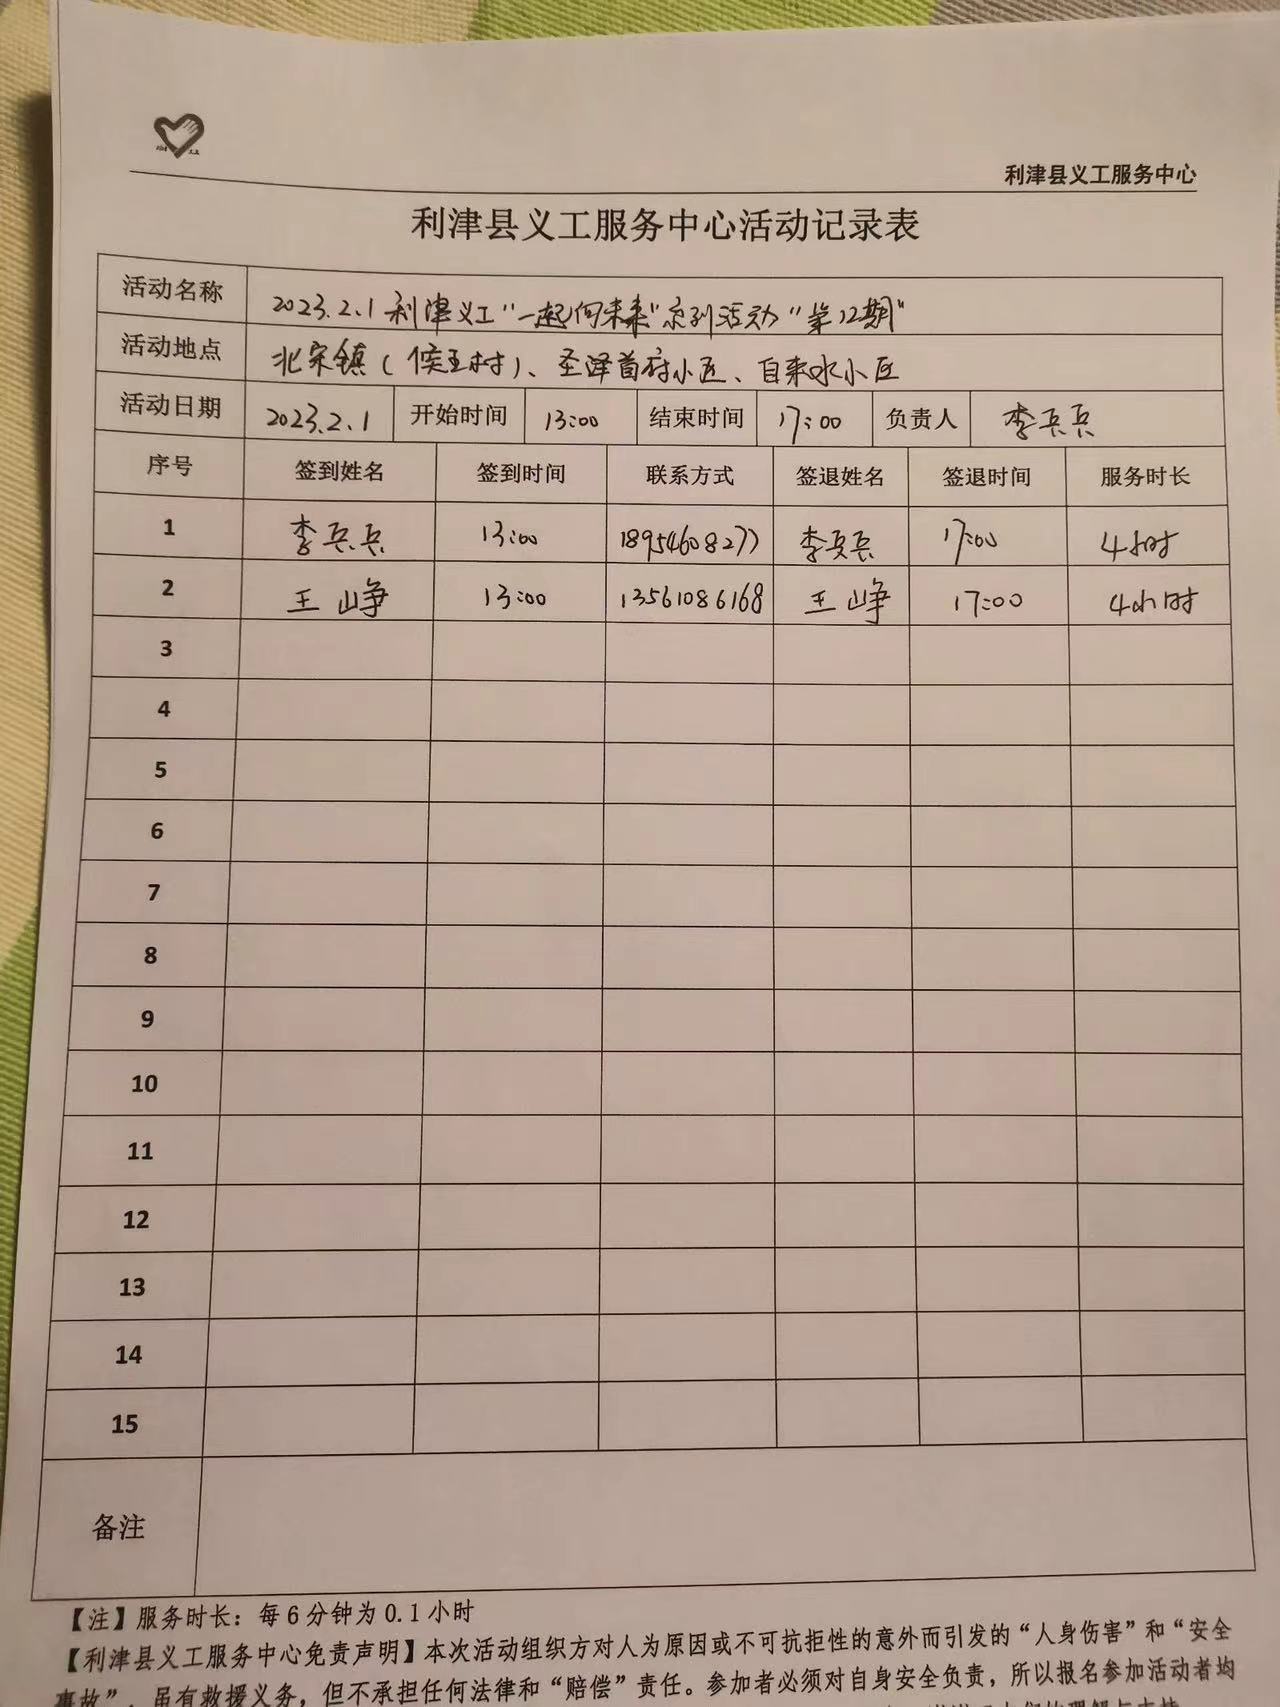 利津县义工服务中心
利津县义工服务中心活动记录表
活动名称 2023.2.1利津义工“一起向未来”系列活动“第12期”
活动地点 北宋镇(侯王村)、圣泽首府小区、自来水小区
活动日期 2023.2.1 开始时间 13:00 结束时间 17:00 负责人 李兵兵
序号 签到姓名 签到时间 联系方式 签退姓名 签退时间 服务时长
1 李兵兵 13:00 18954608277 李兵兵 17:00 4小时
2 王峥 13:00 13561086168 王峥 17:00 4小时
3
4
5
6
7
8
9
10
11
12
13
14
15
备注
【注】服务时长:每6分钟为0.1小时
【利津县义工服务中心免责声明】本次活动组织方对人为原因或不可抗拒性的意外而引发的“人身伤害”和“安全
事故”,虽有救援义务,但不承担任何法律和“赔偿”责任。参加者必须对自身安全负责,所以报名参加活动者均